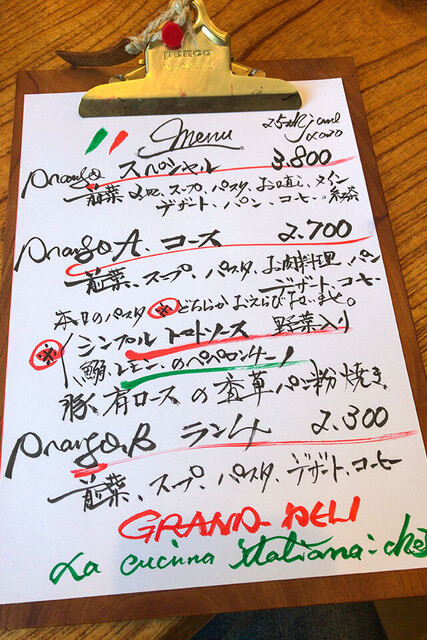 penco
Menu
Prango スペシャル 3.800
前菜 2皿、スープ、パスタ、お口直し、メイン
デザート、パン、コーヒー、紅茶
Prango A. コース 2.700
前菜、スープ、パスタ、お肉料理 パン
デザート、コーヒー
本日のパスタ ※どちらかおえらび下さいませ。
※ シンプル トマトソース 野菜入り
鰯、レモン、のペペロンチーノ
豚 肩ロース の 香草 パン粉焼き
Prango, B ランチ 2.300
前菜、スープ、パスタ、デザート、コーヒー
GRAND-DELI
La cucina italiana: